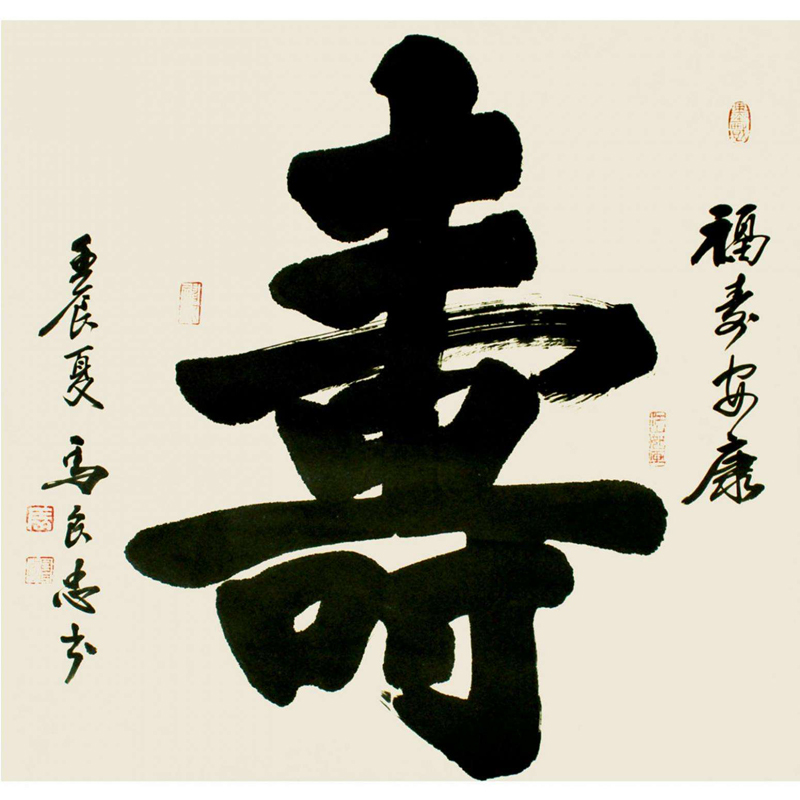 福寿安康
壽
壬辰夏 马良忠书